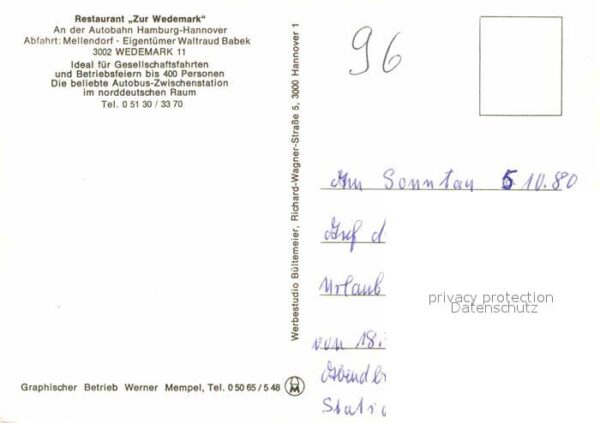 Restaurant „Zur Wedemark“
An der Autobahn Hamburg-Hannover
Abfahrt: Mellendorf - Eigentümer Waltraud Babek
3002 WEDEMARK 11
Ideal für Gesellschaftsfahrten
und Betriebsfeiern bis 400 Personen
Die beliebte Autobus-Zwischenstation
im norddeutschen Raum
Tel. 0 51 30 / 33 70
Werbestudio Bültemeier, Richard-Wagner-Straße 5, 3000 Hannover 1
Graphischer Betrieb Werner Mempel, Tel. 0 50 65 / 5 48
96
Am Sonntag 5 10.80
Auf d
Urlaub
von 18.
Abendb
Stati
privacy protection
Datenschutz